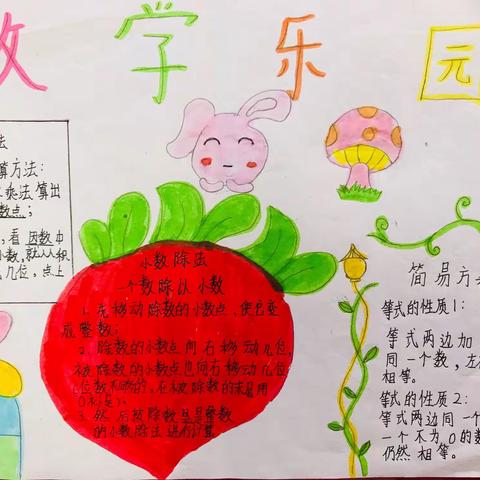 数学乐园
法
算方法：
乘法算出
数点；
，看因数中
小数，就从积
几位，点上
小数除法
一个数除以小数
1. 先移动除数的小数点，使它变
成整数；
2. 除数的小数点向右移动几位，
被除数的小数点也向右移动几位
位数不够的，在被除数的末尾用
0补足）；
3. 然后按除数是整数
的小数除法进行计算
简易方
等式的性质1：
等式两边加
同一个数，左
相等。
等式的性质2：
等式两边同一个
一个不为0的数
仍然相等。